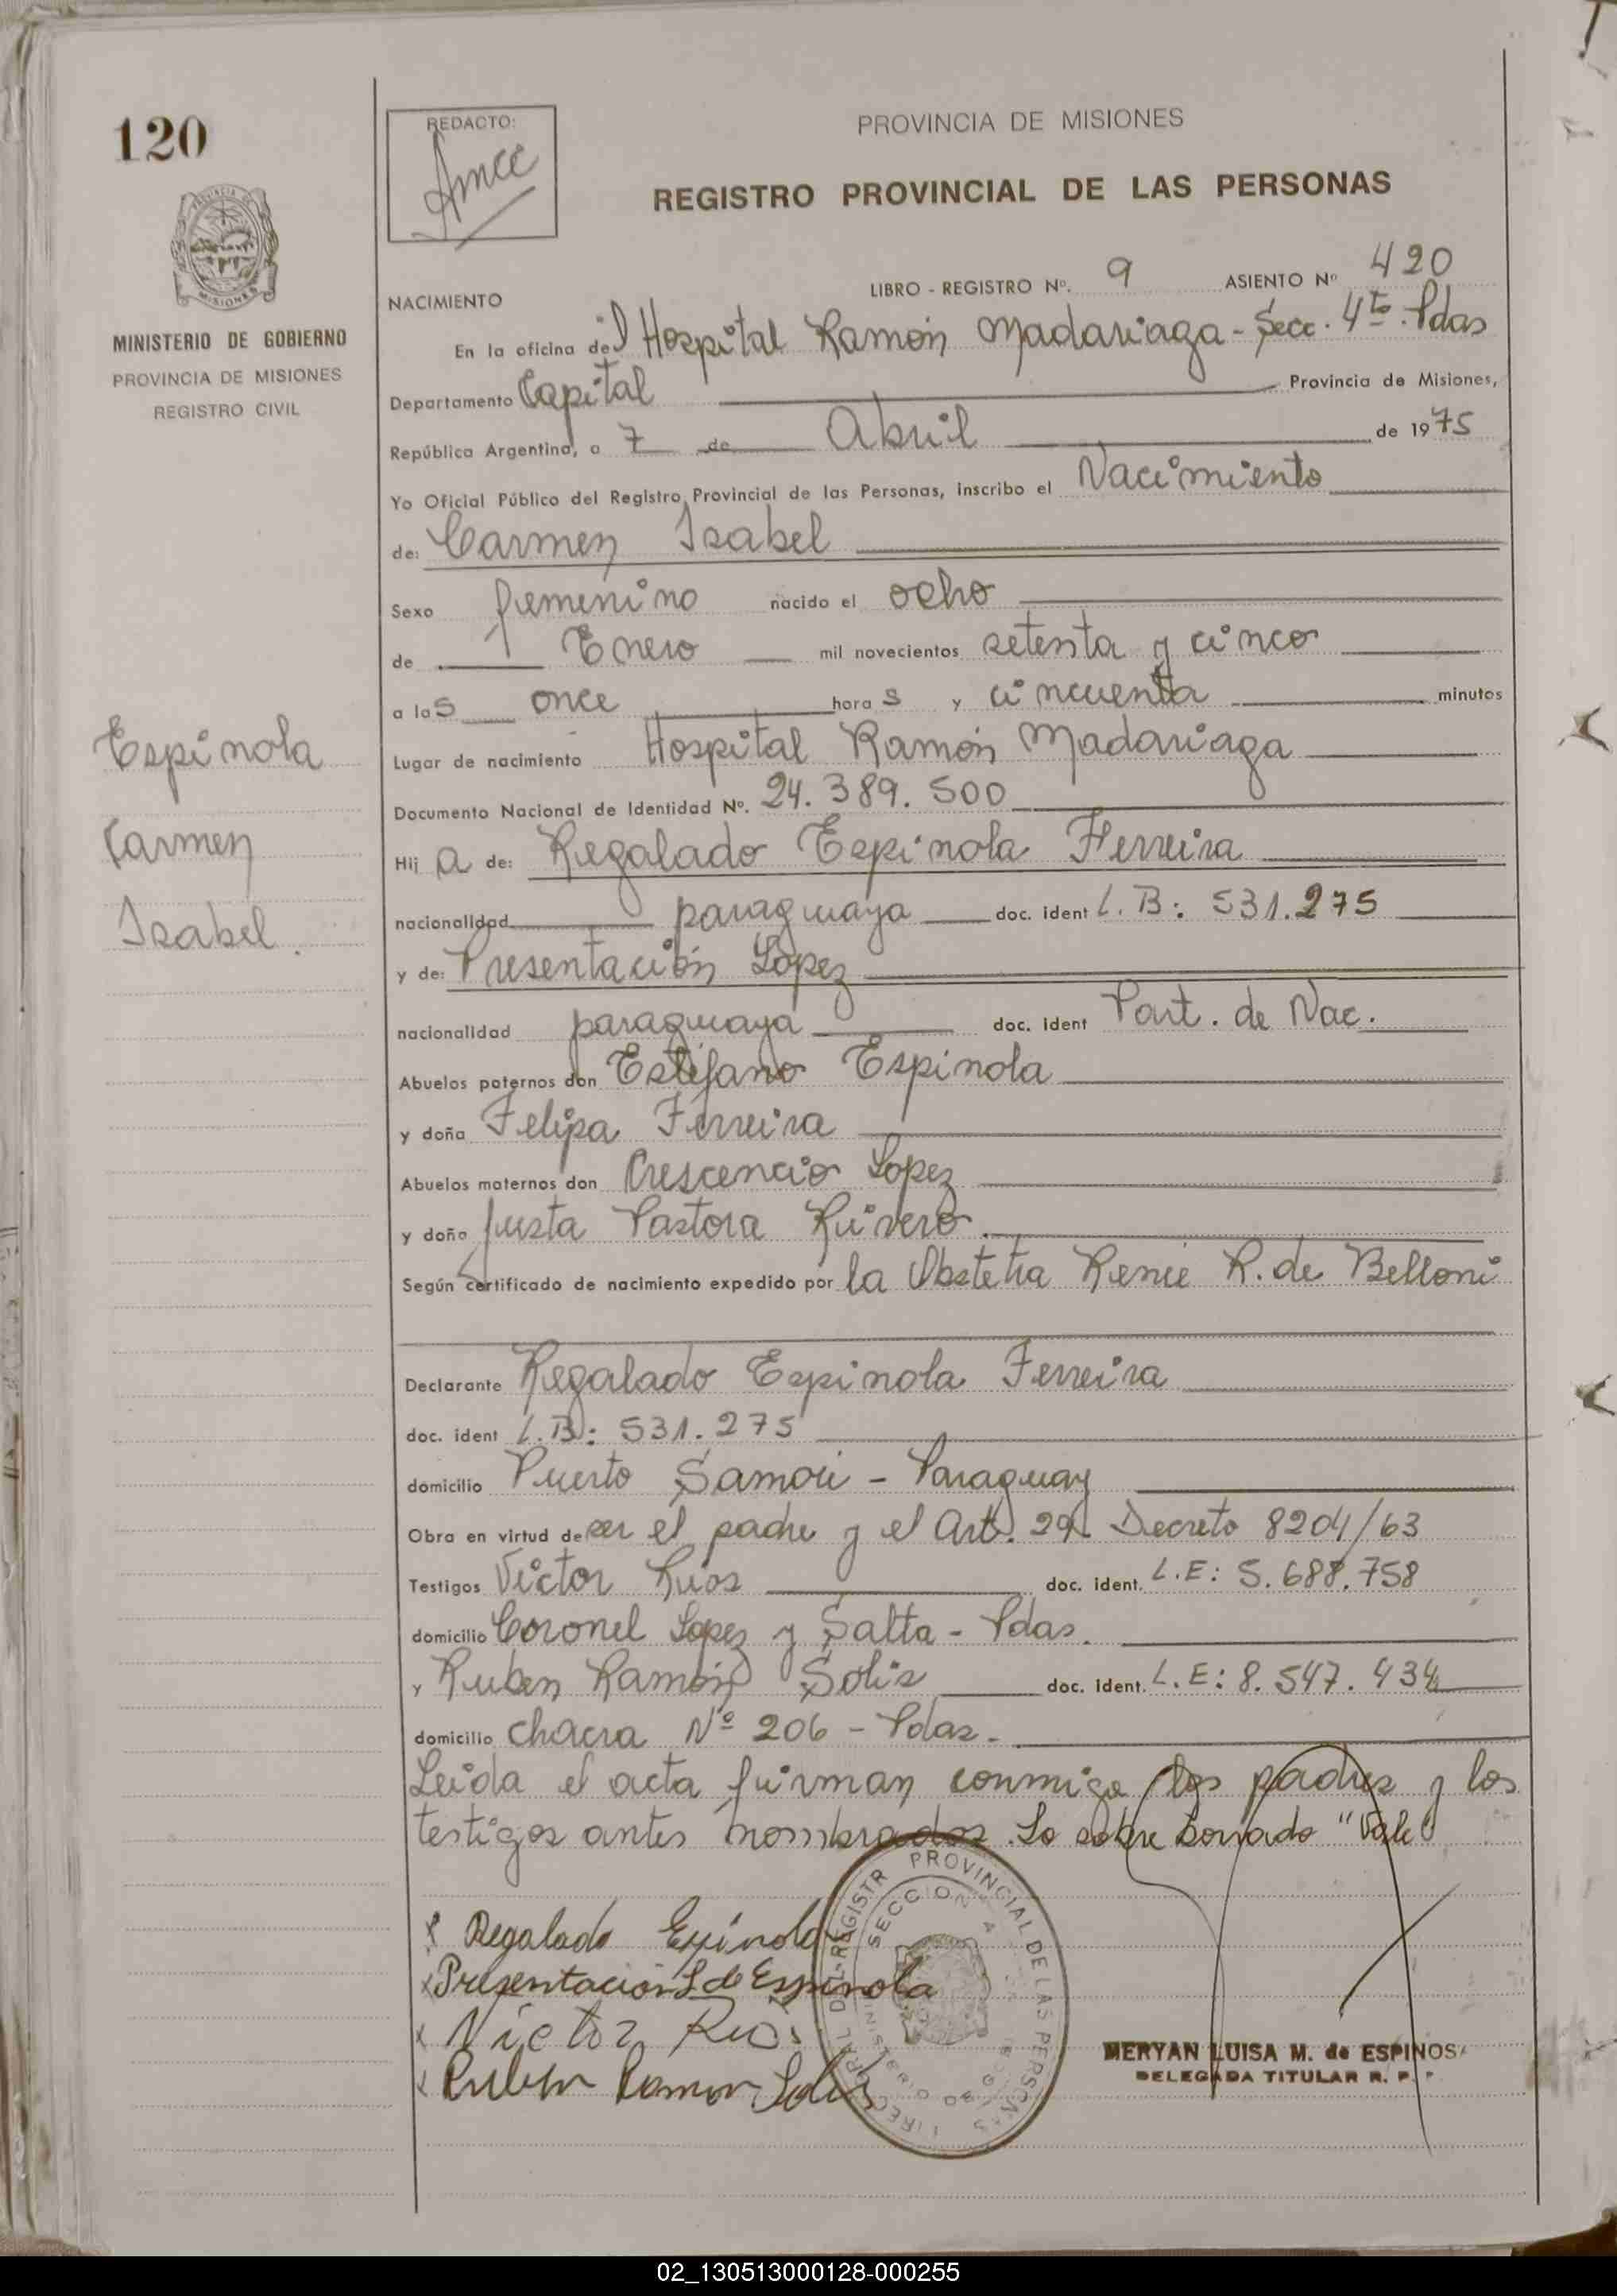 120
REDACTO:
PROVINCIA DE MISIONES
REGISTRO PROVINCIAL DE LAS PERSONAS
MISIONES
MINISTERIO DE GOBIERNO
PROVINCIA DE MISIONES
REGISTRO CIVIL
Espinola
Carmen
Isabel.
LIBRO - REGISTRO Nº. 9 ASIENTO Nº 420
NACIMIENTO
En la oficina del Hospital Ramón Madariaga - Secc. 4ta. Pdas
Departamento Capital Provincia de Misiones,
República Argentina, a 7 de Abril de 1975
Yo Oficial Público del Registro Provincial de las Personas, inscribo el Nacimiento
de: Carmen Isabel
Sexo femenino nacido el ocho
de Enero mil novecientos setenta y cinco
a las once horas y cincuenta minutos
Lugar de nacimiento Hospital Ramón Madariaga
Documento Nacional de Identidad Nº. 24.389.500
Hija de: Regalado Espinola Ferreira
nacionalidad paraguaya doc. ident L.B: 531.275
y de: Presentación Lopez
nacionalidad paraguaya doc. ident Part. de Nac.
Abuelos paternos don Estefano Espinola
y doña Felipa Ferreira
Abuelos maternos don Crescencio Lopez
y doña Justa Pastora Rivero
Según certificado de nacimiento expedido por la Obstetra Renée R. de Belloni
Declarante Regalado Espinola Ferreira
doc. ident L.B: 531.275
domicilio Puerto Samou - Paraguay
Obra en virtud de ser el padre y el Art. 29 Decreto 8204/63
Testigos Victor Rios doc. ident. L.E: 5.688.758
domicilio Coronel Lopez y Salta - Pdas.
y Ruben Ramón Solis doc. ident. L.E: 8.547.434
domicilio chacra Nº 206 - Pdas.
Leída el acta firman conmigo los padres y los
testigos antes nombrados. Lo sobre borrado "Vale"
x Regalado Espínola
x Presentación L de Espinola
x Victor Rios
x Ruben Ramon Solis
PROVINCIAL DE LAS PERSONAS
SECCION 4
MINISTERIO DE
MERYAN LUISA M. de ESPINOSA
DELEGADA TITULAR R. P. P
02_130513000128-000255